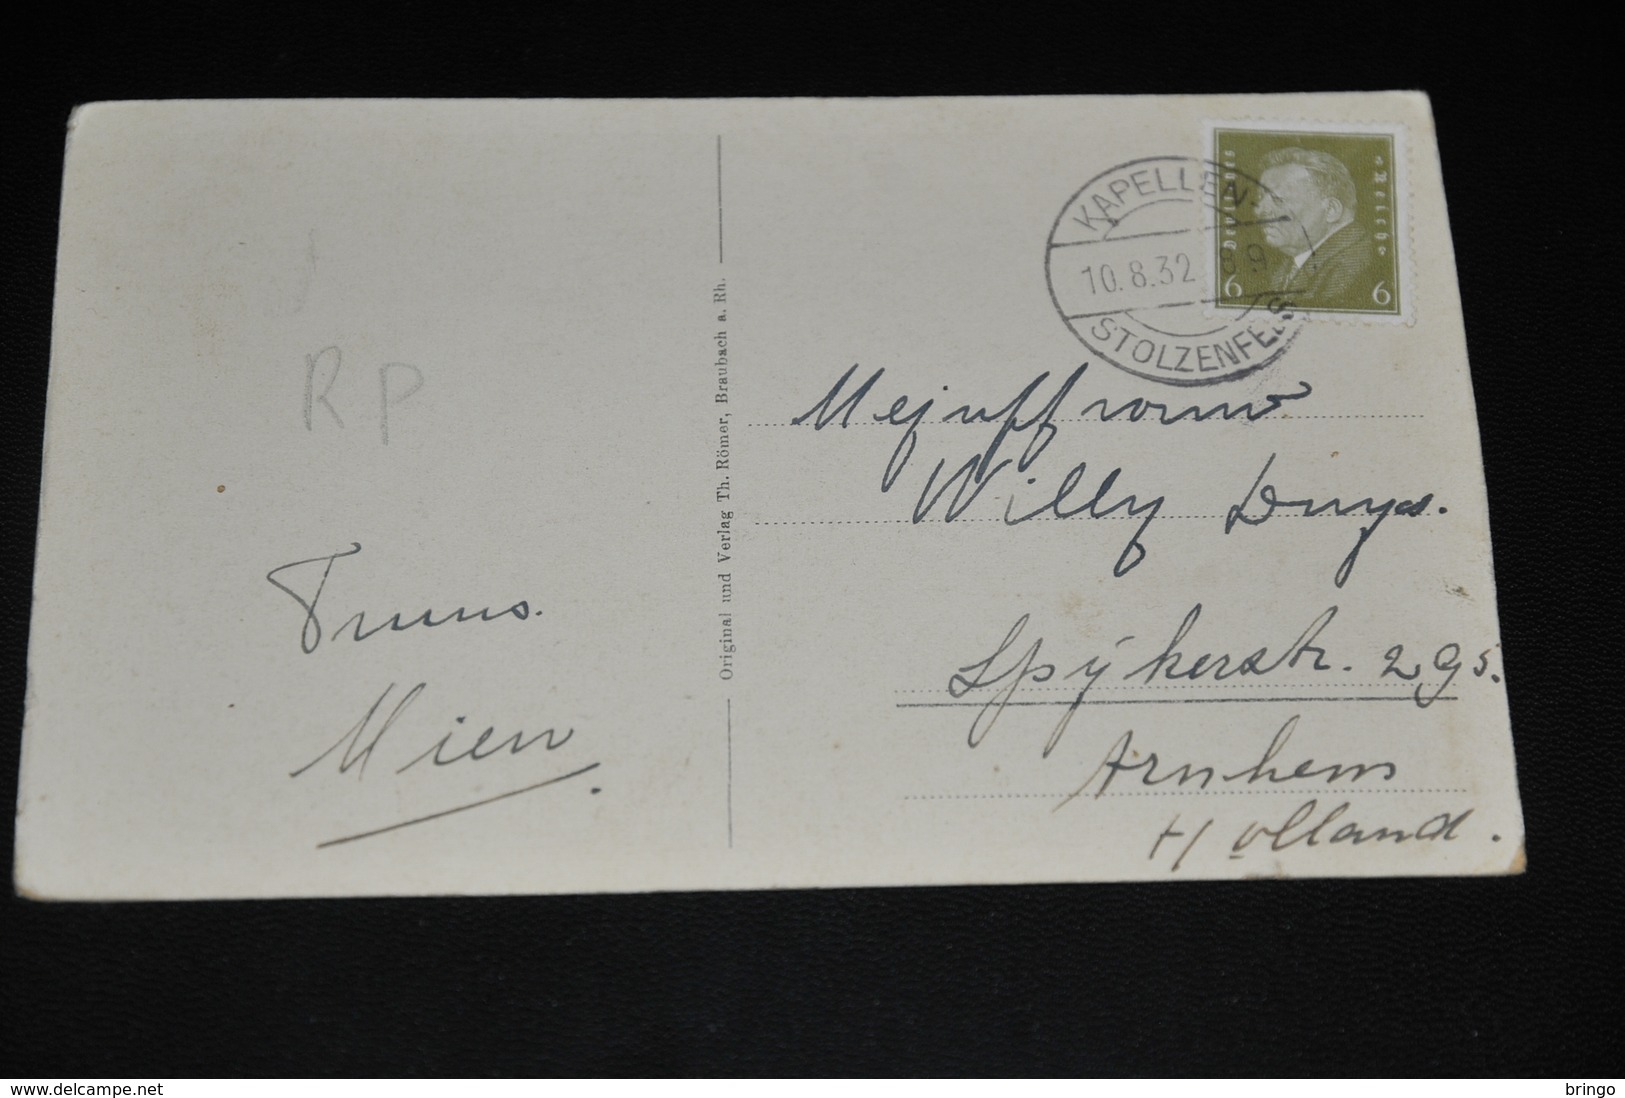 RP
Truus.
Mien
Original und Verlag Th. Römer, Braubach a. Rh.
KAPELLEN-
10.8.32 8.9
STOLZENFELS
Deutsches
Reich
6 6
Mejuffrouw
Willy Duys.
Spijkerstr. 295.
Arnhem
Holland.
www.delcampe.net
bringo